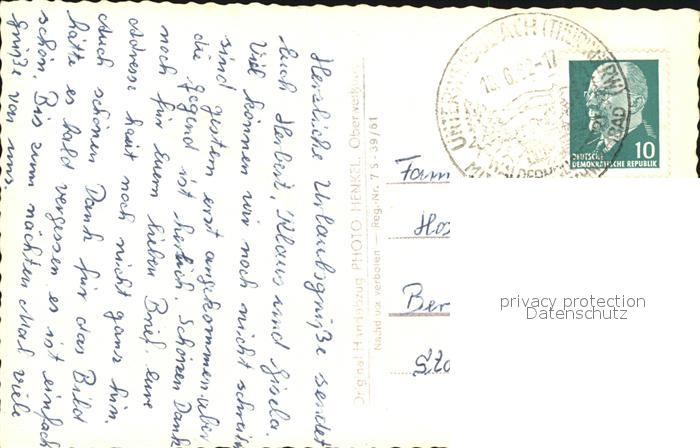 Herzliche Urlaubsgrüße sendet
Euch Herbert, Klaus und Gisela.
Viel können wir noch nicht schreiben
sind gestern erst angekommen. Aber
die Gegend ist herlich. Schönen Dank
noch für Euern lieben Brief. Eure
Adresse haut noch nicht ganz hin.
Auch schönen Dank für das Bild
hätte es bald vergessen es ist einfach
schön. Bis zum nächten Mal viele
Grüße von uns.
Original Handabzug PHOTO HENKEL, Oberweißbach
Nachdruck verboten — Reg.-Nr. 7 S-39/61
(THÜRINGEN)
10
DEUTSCHE
DEMOKRATISCHE REPUBLIK
Fam
Hos
Ber
Sto
privacy protection
Datenschutz